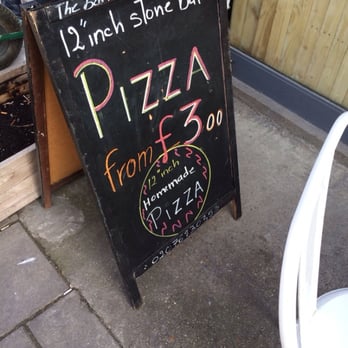 The
12" inch stone
PIZZA
from £3.00
12" inch
Homemade
PIZZA